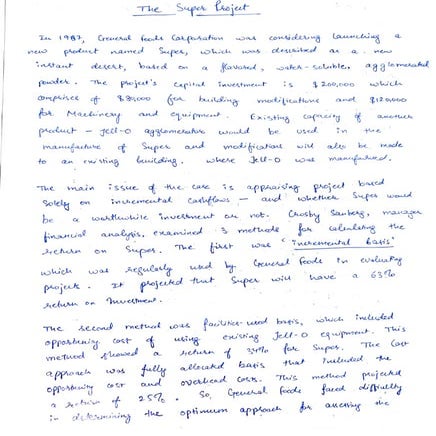 The Super Project
In 1967, General Foods Corporation was considering launching a
new product named Super, which was described as a new
instant desert, based on a flavored, water-soluble, agglomerated
powder. The project's capital investment is $200,000 which
comprises of $80,000 for building modifications and $120,000
for Machinery and equipment. Existing capacity of another
product - Jell-O agglomerators would be used in the
manufacture of Super and modifications will also be made
to an existing building. where Jell-O was manufactured.
The main issue of the case is appraising project based
solely on incremental cashflows - and whether Super would
be a worthwhile investment or not. Crosby Sanberg, manager
financial analysis, examined 3 methods for calculating the
return on Super. The first was 'incremental basis'
which was regularly used by General Foods in evaluating
projects. It projected that Super will have a 63%
return on Investment.
The second method was facilities-used basis, which included
opportunity cost of using existing Jell-O equipment. This
method showed a return of 34% for Super. The last
approach was fully allocated basis that included the
opportunity cost and overhead costs. This method projected
a return of 25%. So, General Foods faced difficulty
in determining the optimum approach for assessing the